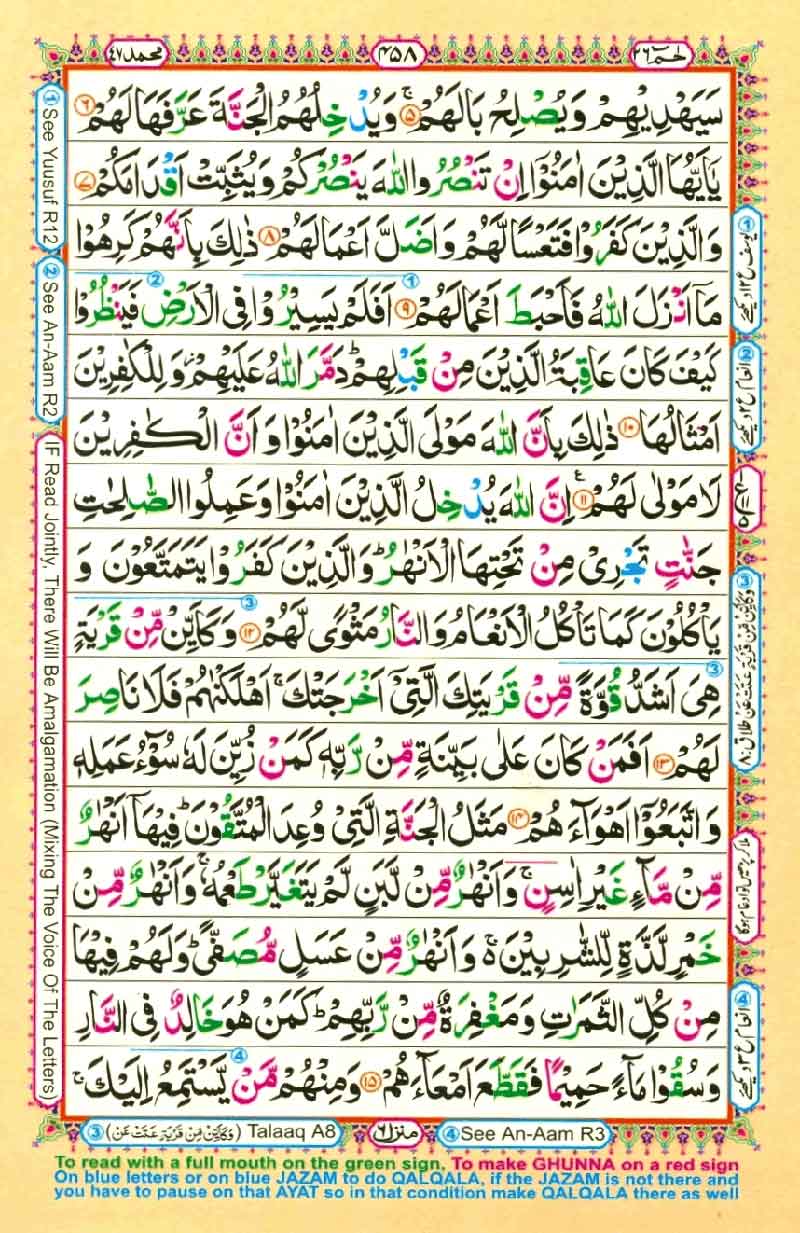 محمد ٤٧
٤٥٨
حٰمٓ ٢٦
سَيَهْدِيْهِمْ وَيُصْلِحُ بَالَهُمْ ۚ۝٥ وَيُدْخِلُهُمُ الْجَنَّةَ عَرَّفَهَا لَهُمْ ۝٦
يٰۤاَيُّهَا الَّذِيْنَ اٰمَنُوْۤا اِنْ تَنْصُرُوا اللّٰهَ يَنْصُرْكُمْ وَيُثَبِّتْ اَقْدَامَكُمْ ۝٧
وَالَّذِيْنَ كَفَرُوْا فَتَعْسًا لَّهُمْ وَاَضَلَّ اَعْمَالَهُمْ ۝٨ ذٰلِكَ بِاَنَّهُمْ كَرِهُوْا
مَاۤ اَنْزَلَ اللّٰهُ فَاَحْبَطَ اَعْمَالَهُمْ ۝٩ اَفَلَمْ يَسِيْرُوْا فِى الْاَرْضِ فَيَنْظُرُوْا
كَيْفَ كَانَ عَاقِبَةُ الَّذِيْنَ مِنْ قَبْلِهِمْ ؕ دَمَّرَ اللّٰهُ عَلَيْهِمْ ۫ وَلِلْكٰفِرِيْنَ
اَمْثَالُهَا ۝١٠ ذٰلِكَ بِاَنَّ اللّٰهَ مَوْلَى الَّذِيْنَ اٰمَنُوْا وَاَنَّ الْكٰفِرِيْنَ
لَا مَوْلٰى لَهُمْ ۝١١ ع اِنَّ اللّٰهَ يُدْخِلُ الَّذِيْنَ اٰمَنُوْا وَعَمِلُوا الصّٰلِحٰتِ
جَنّٰتٍ تَجْرِىْ مِنْ تَحْتِهَا الْاَنْهٰرُ ؕ وَالَّذِيْنَ كَفَرُوْا يَتَمَتَّعُوْنَ وَ
يَاْكُلُوْنَ كَمَا تَاْكُلُ الْاَنْعَامُ وَالنَّارُ مَثْوًى لَّهُمْ ۝١٢ وَكَاَيِّنْ مِّنْ قَرْيَةٍ
هِىَ اَشَدُّ قُوَّةً مِّنْ قَرْيَتِكَ الَّتِىْۤ اَخْرَجَتْكَ ۚ اَهْلَكْنٰهُمْ فَلَا نَاصِرَ
لَهُمْ ۝١٣ اَفَمَنْ كَانَ عَلٰى بَيِّنَةٍ مِّنْ رَّبِّهٖ كَمَنْ زُيِّنَ لَهٗ سُوْٓءُ عَمَلِهٖ
وَاتَّبَعُوْۤا اَهْوَآءَهُمْ ۝١٤ مَثَلُ الْجَنَّةِ الَّتِىْ وُعِدَ الْمُتَّقُوْنَ ؕ فِيْهَاۤ اَنْهٰرٌ
مِّنْ مَّآءٍ غَيْرِ اٰسِنٍ ۚ وَاَنْهٰرٌ مِّنْ لَّبَنٍ لَّمْ يَتَغَيَّرْ طَعْمُهٗ ۚ وَاَنْهٰرٌ مِّنْ
خَمْرٍ لَّذَّةٍ لِّلشّٰرِبِيْنَ ۚ۬ وَاَنْهٰرٌ مِّنْ عَسَلٍ مُّصَفًّى ؕ وَلَهُمْ فِيْهَا
مِنْ كُلِّ الثَّمَرٰتِ وَمَغْفِرَةٌ مِّنْ رَّبِّهِمْ ؕ كَمَنْ هُوَ خَالِدٌ فِى النَّارِ
وَسُقُوْا مَآءً حَمِيْمًا فَقَطَّعَ اَمْعَآءَهُمْ ۝١٥ وَمِنْهُمْ مَّنْ يَّسْتَمِعُ اِلَيْكَ ۚ
① See Yuusuf R12
② See An-Aam R2
IF Read Jointly, There Will Be Amalgamation (Mixing The Voice Of The Letters)
① یوسف ع ١٢ دیکھئے
② انعام ع ٢ دیکھئے
③ وَكَاَيِّنْ مِنْ قَرْيَةٍ عَتَتْ عَنْ طلاق: ٨
ملا کر پڑھیں تو ادغام ہوگا
④ انعام ع ٣ دیکھئے
③ (وَكَاَيِّنْ مِنْ قَرْيَةٍ عَتَتْ عَنْ) Talaaq A8
منزل ٦
④ See An-Aam R3
To read with a full mouth on the green sign, To make GHUNNA on a red sign
On blue letters or on blue JAZAM to do QALQALA, if the JAZAM is not there and
you have to pause on that AYAT so in that condition make QALQALA there as well